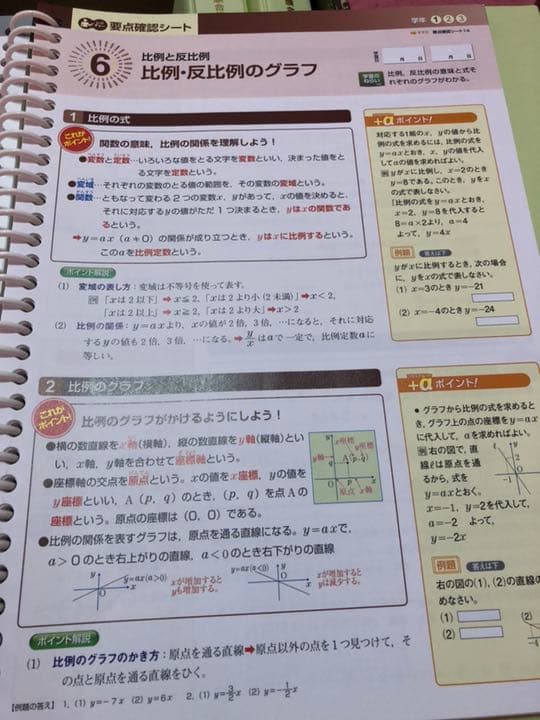 要点確認シート
学年 1 2 3
要点確認シート14
6
比例と反比例
比例・反比例のグラフ
学習日 月 日 月 日
学習のねらい
比例，反比例の意味と式それぞれのグラフがわかる。
1 比例の式
これがポイント!
関数の意味，比例の関係を理解しよう！
●変数と定数…いろいろな値をとる文字を変数といい，決まった値をと
る文字を定数という。
●変域…それぞれの変数のとる値の範囲を，その変数の変域という。
●関数…ともなって変わる2つの変数x，yがあって，xの値を決めると，
それに対応するyの値がただ1つ決まるとき，yはxの関数であ
るという。
➡y＝ax（a≠0）の関係が成り立つとき，yはxに比例するという。
このaを比例定数という。
ポイント解説
(1) 変域の表し方：変域は不等号を使って表す。
例「xは2以下」➡x≦2，「xは2より小(2未満)」➡x＜2，
「xは2以上」➡x≧2，「xは2より大」➡x＞2
(2) 比例の関係：y＝axより，xの値が2倍，3倍，…になると，それに対応
するyの値も2倍，3倍，…になる。➡y/xはaで一定で，比例定数aに
等しい。
+αポイント!
対応する1組のx，yの値から比
例の式を求めるには，比例の式を
y＝axとおき，x，yの値を代入
してaの値を求めればよい。
例 yがxに比例し，x＝2のとき
y＝8である。このとき，yをx
の式で表しなさい。
［比例の式をy＝axとおき，
x＝2，y＝8を代入すると
8＝a×2より，a＝4
よって，y＝4x
例題 答えは下
yがxに比例するとき，次の場合
に，yをxの式で表しなさい。
(1) x＝3のときy＝－21
(2) x＝－4のときy＝－24
2 比例のグラフ
これがポイント!
比例のグラフがかけるようにしよう！
●横の数直線をx軸(横軸)，縦の数直線をy軸(縦軸)とい
い，x軸，y軸を合わせて座標軸という。
●座標軸の交点を原点という。xの値をx座標，yの値を
y座標といい，A（p，q）のとき，（p，q）を点Aの
座標という。原点の座標は（0，0）である。
●比例の関係を表すグラフは，原点を通る直線になる。y＝axで，
a＞0のとき右上がりの直線，a＜0のとき右下がりの直線
y
x座標
y座標
y軸
A(p, q)
原点
x軸
y
y＝ax(a＞0)
O
x
xが増加すると
yも増加する。
y＝ax(a＜0)
y
O
x
xが増加すると
yは減少する。
ポイント解説
(1) 比例のグラフのかき方：原点を通る直線➡原点以外の点を1つ見つけて，そ
の点と原点を通る直線をひく。
+αポイント!
● グラフから比例の式を求めると
き，グラフ上の点の座標をy＝a
に代入して，aを求めればよい。
例 右の図で，直
線ℓは原点を通
るから，式を
y＝axとおく。
x＝－1，y＝2を代入
a＝－2 よって，
y＝－2x
例題 答えは下
右の図の(1)，(2)の直線の
めなさい。
(1)
(2)
【例題の答え】 1. (1) y＝－7x (2) y＝6x 2. (1) y＝3/2x (2) y＝－1/2x